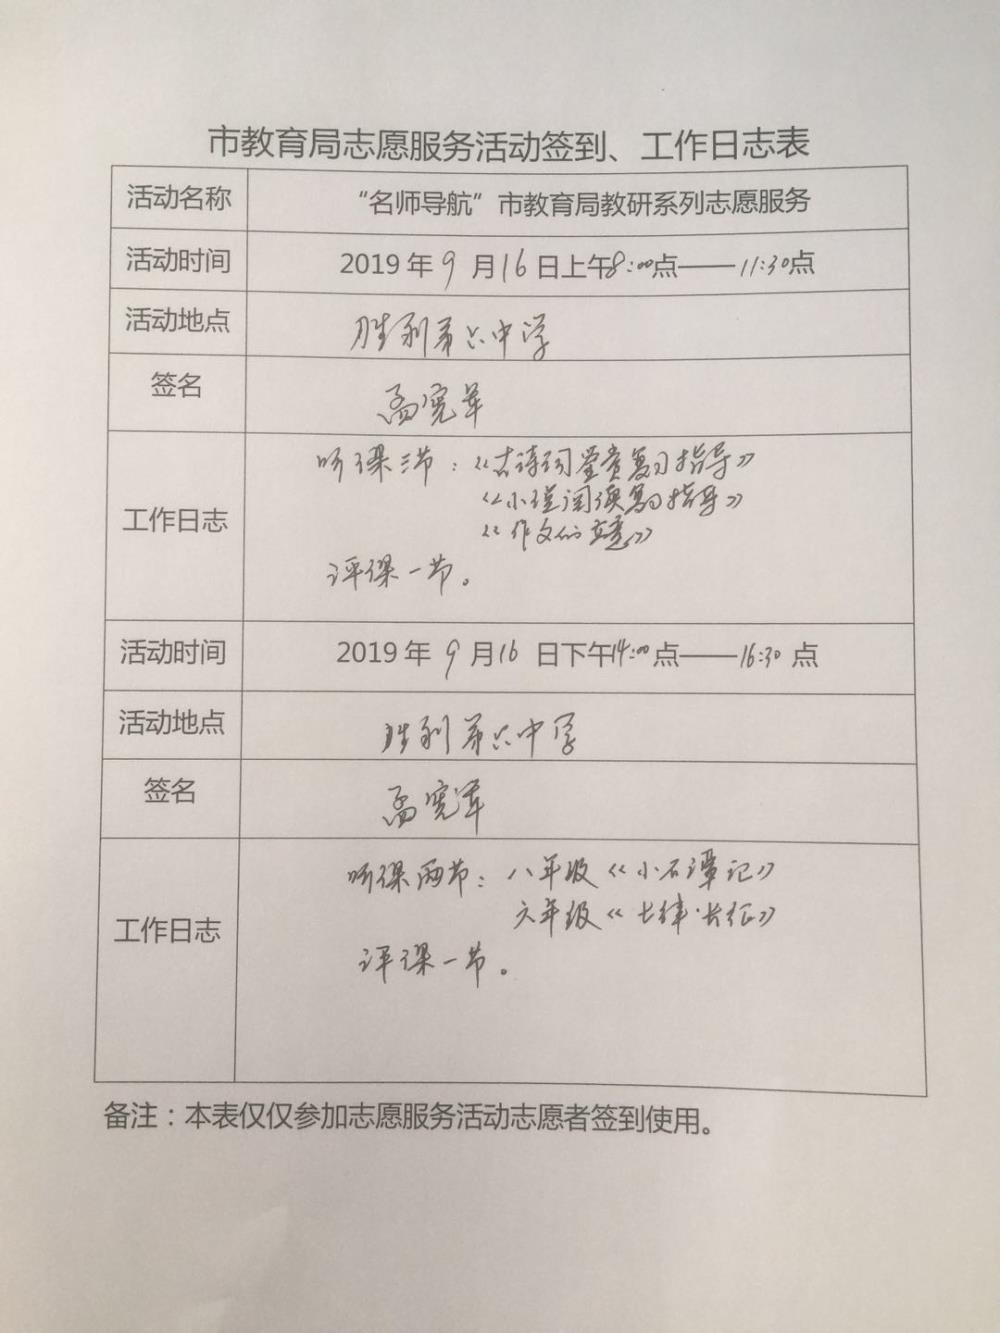 市教育局志愿服务活动签到、工作日志表
活动名称 “名师导航”市教育局教研系列志愿服务
活动时间 2019年9月16日上午8:00点——11:30点
活动地点 胜利第六中学
签名 孟宪军
工作日志 听课三节：《古诗词鉴赏复习指导》
《小说阅读复习指导》
《作文的立意》
评课一节。
活动时间 2019年9月16日下午14:00点——16:30点
活动地点 胜利第六中学
签名 孟宪军
工作日志 听课两节：八年级《小石潭记》
六年级《七律·长征》
评课一节。
备注：本表仅仅参加志愿服务活动志愿者签到使用。